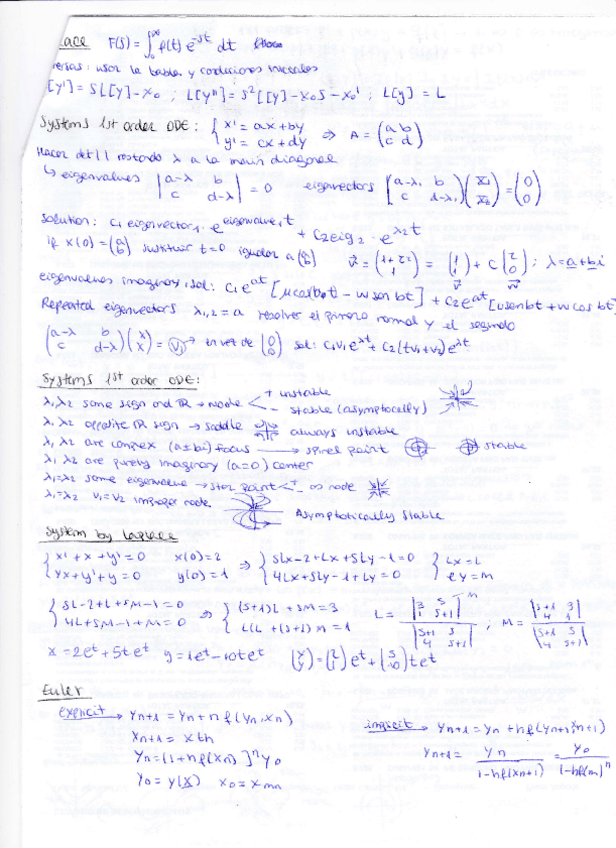 F(s) = ∫₀^∞ f(t) e^-st dt
usar la tabla y condiciones iniciales
[y'] = sL[y] - x₀ ; L[y''] = s²[[y] - x₀s - x₀' ; L[y] = L
Systems 1st order ODE: { x' = ax + by y' = cx + dy ⇒ A = (a b c d)
Hacer det || restando λ a la main diagonal
↳ eigenvalues |a-λ b c d-λ| = 0 eigenvectors [a-λ₁ b c d-λ₁](x₁ x₂) = (0 0)
solution: c₁ eigenvector₁ · e^eigenvalue₁t + c₂ eig₂ · e^λ₂t
if x(0) = (a b) sustituir t=0 igualar a (a b)
eigenvalues imaginary, sol: c₁e^at [u cos bt - w sen bt] + c₂e^at [u sen bt + w cos bt]
Repeated eigenvectors λ₁,₂ = a resolver el primero normal y el segundo
(a-λ b c d-λ)(x x) = (v₁) → en vez de (0 0) sol: c₁v₁e^λt + c₂(tv₁+v₂)e^λt
Systems 1st order ODE:
λ₁ λ₂ same sign and ℝ → node < + unstable - stable (asymptocally)
λ₁ λ₂ opposite ℝ sign → saddle always unstable
λ₁ λ₂ are complex (a±bi) focus → spiral point stable
λ₁ λ₂ are purely imaginary (a=0) center
λ₁=λ₂ same eigenvalue → star point < + - ∞ node
λ₁=λ₂ v₁=v₂ improper node
Asymptotically stable
System by Laplace
{ x' + x + y' = 0 4x + y' + y = 0 x(0)=2 y(0)=1 ⇒ { sLx - 2 + Lx + sLy - 1 = 0 4Lx + sLy - 1 + Ly = 0 { Lx = L Ly = M
{ sL - 2 + L + sM - 1 = 0 4L + sM - 1 + M = 0 ⇒ { (s+1)L + sM = 3 4L + (s+1)M = 1 L = |3 s 1 s+1| / |s+1 s 4 s+1| ; M = |s+1 3 4 1| / |s+1 s 4 s+1|
x = 2e^t + 5te^t y = 1e^t - 10te^t (x y) = (2 1)e^t + (5 -10)te^t
Euler
explicit → yn+1 = yn + hf(yn, xn) implicit → yn+1 = yn + hf(yn+1 xn+1)
xn+1 = x + h yn+1 = yn / 1-hf(xn+1) = y₀ / (1-hf(m))^n
yn = [1 + hf(xn)]^n y₀
y₀ = y(x) x₀ = x